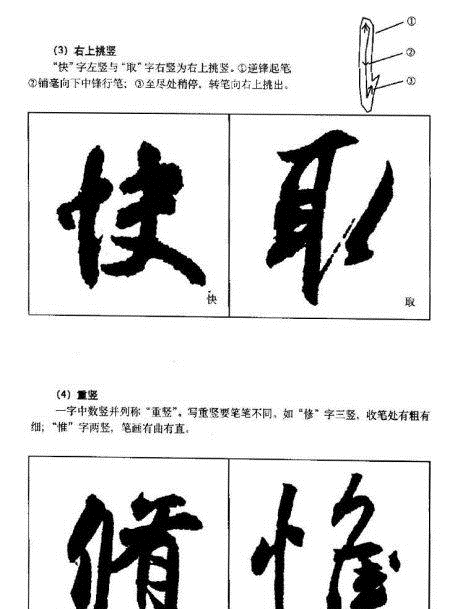 （3）右上挑竖
“快”字左竖与“取”字右竖为右上挑竖。①逆锋起笔
②铺毫向下中锋行笔；③至尽处稍停，转笔向右上挑出。
①
②
③
快 取
快
取
（4）重竖
一字中数竖并列称“重竖”。写重竖要笔笔不同，如“修”字三竖，收笔处有粗有
细；“惟”字两竖，笔画有曲有直。
脩 惟